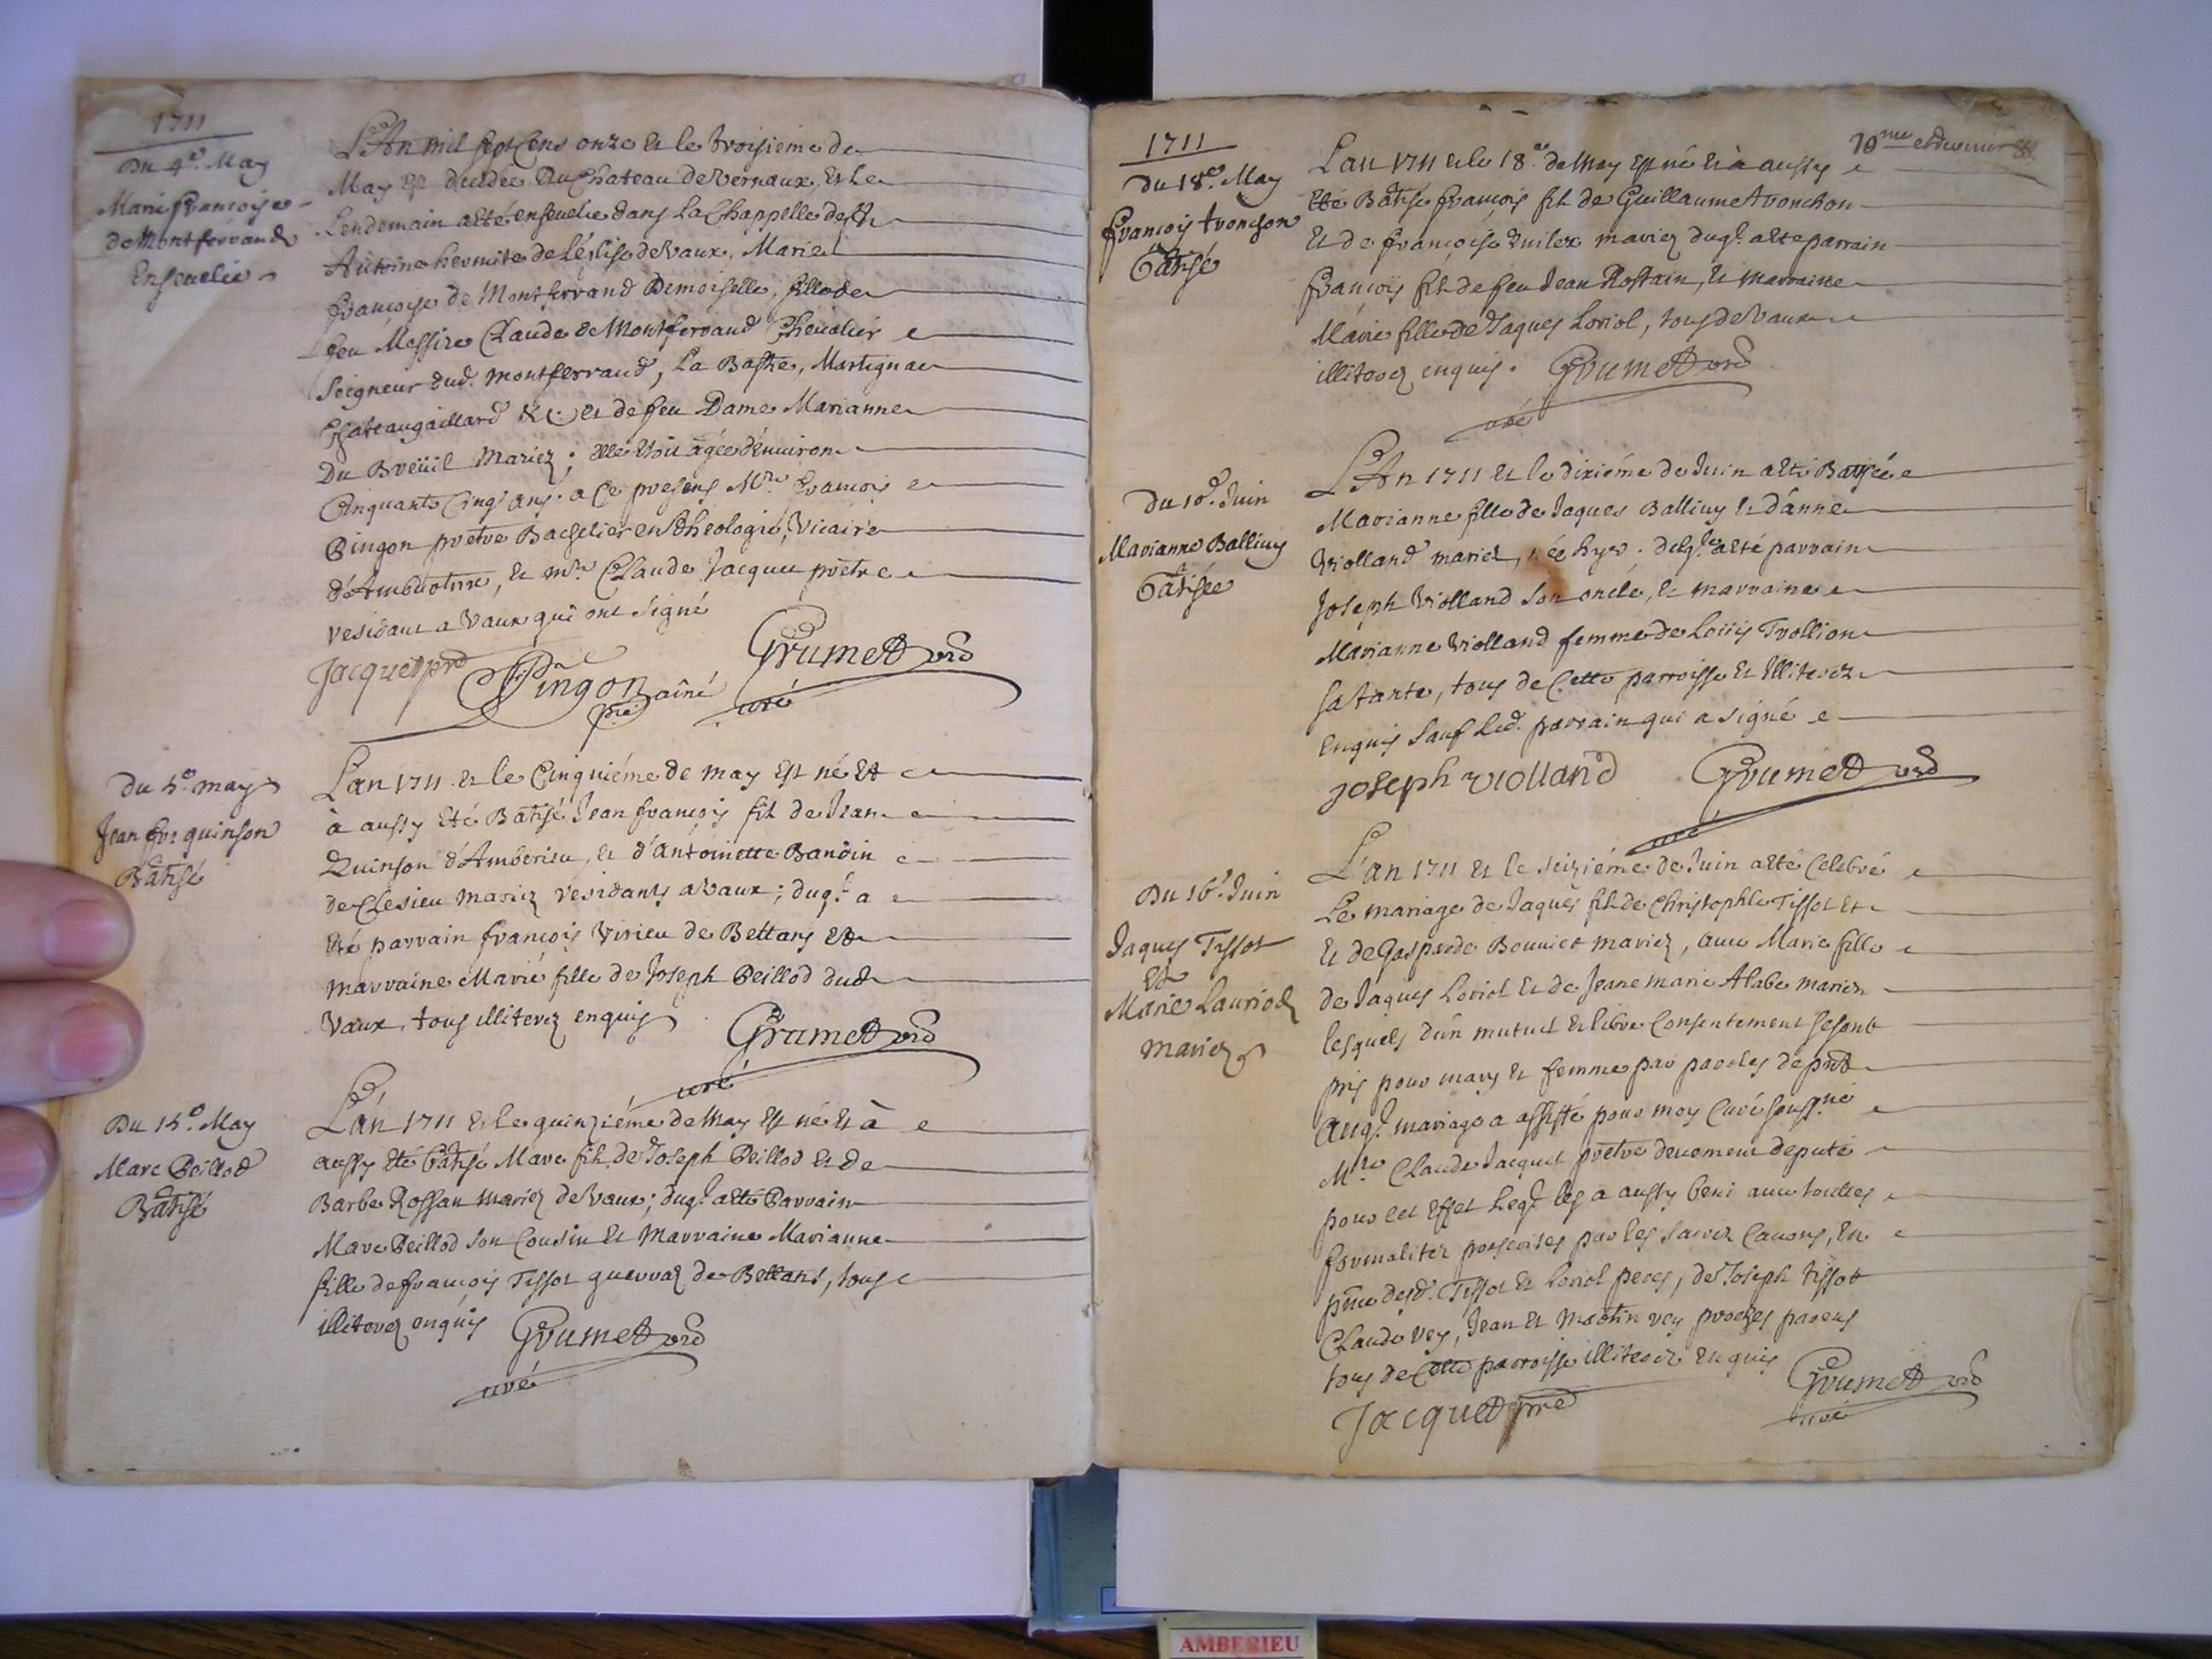 1711
Du 4e. May
Marie francoise
de Montferrand
Enseuelie
L'An mil sept Cens onze et le troisieme de
May est decedée au Chateau de Vernaux, et le
Lendemain a eté enseuelie dans la Chappelle de St
Antoine hermite de l'église de Vaux, Marie
francoise de Montferrand Demoiselle, fille de
feu Messire Claude de Montferrand Cheualier
Seigneur dud. Montferrand, La Bastie, Martignac
Chateaugaillard &c. et de feu Dame Marianne
Du Breüil Mariez; elle etoit agée d'enuiron
Cinquante Cinq ans. a ce presens Mre. francois
Pingon pretre Bachelier en theologie, Vicaire
d'Ambutrix, et mre. Claude Jacquet pretre
residant a Vaux qui ont signé
Jacquet pre
Pingon aîné
pre
Grumet
curé
Du 5e. may
Jean frs. quinson
Batisé
L'an 1711 et le Cinquiéme de may est né et
à aussy eté Batisé Jean francois fils de Jean
Quinson d'Amberieu, et d'Antoinette Bandin
de Clesieu mariez residants a Vaux; duql. a
eté parrain francois Virieu de Bettans et
marraine Marie fille de Joseph Peillod dud
Vaux, tous illiterez enquis
Grumet
curé
Du 15e. May
Marc Peillod
Batisé
L'an 1711 et le quinziéme de May est né et à
aussy eté batisé Marc fils de Joseph Peillod et de
Barbe Rossan mariez de Vaux; duql. a eté Parrain
Marc Peillod son Cousin et Marraine Marianne
fille de francois Tissot guerraz de Bettans, tous
illiterez enquis
Grumet
curé
10me et dernier
1711
Du 18e. May
francois tronchon
Batisé
L'an 1711 et le 18e. de May est né et à aussy
eté Batisé francois fils de Guillaume tronchon
et de francoise mariez duql. a eté parrain
francois fils de feu Jean Rostain, et marraine
Marie fille de Jaques Loriol, tous de Vaux
illiterez enquis.
Grumet
curé
Du 10e. Juin
Marianne Balliuy
Batisée
L'An 1711 et le dixiéme de Juin a eté Batisée
Marianne fille de Jaques Balliuy et d'anne
Violland mariez, née hyer. delqle. a eté parrain
Joseph Violland son oncle, et marraine
Marianne Violland femme de Loüis Trollion
sa tante, tous de Cette parroisse et Illiterez
enquis sauf Led. parrain qui a signé
joseph violland
Grumet
curé
Du 16e. Juin
Jaques Tissot
Et
Marie Lauriol
Mariez
L'an 1711 et le seiziéme de Juin a eté Celebré
Le mariage de Jaques fils de Christophle Tissot et
et de Gasparde Bonnict mariez, auec Marie fille
de Jaques Loriol et de Jeane marie Alabe mariez
lesquels d'un mutuel et libre Consentement se sont
pris pour mary et femme par paroles de pnt
Auql. mariage a assisté pour moy Curé soussigné
Mre. Claude Jacquet pretre deuement deputé
pour cet effet leql. les a aussy beni auec toutes
formalitez prescrites par les sacrez Canons, en
pnce desd. Tissot et Loriol peres, de Joseph tissot
Claude Vey, Jean et Martin vey proches parens
tous de Cette parroisse illiterez enquis
Jacquet pre
Grumet
curé
AMBERIEU